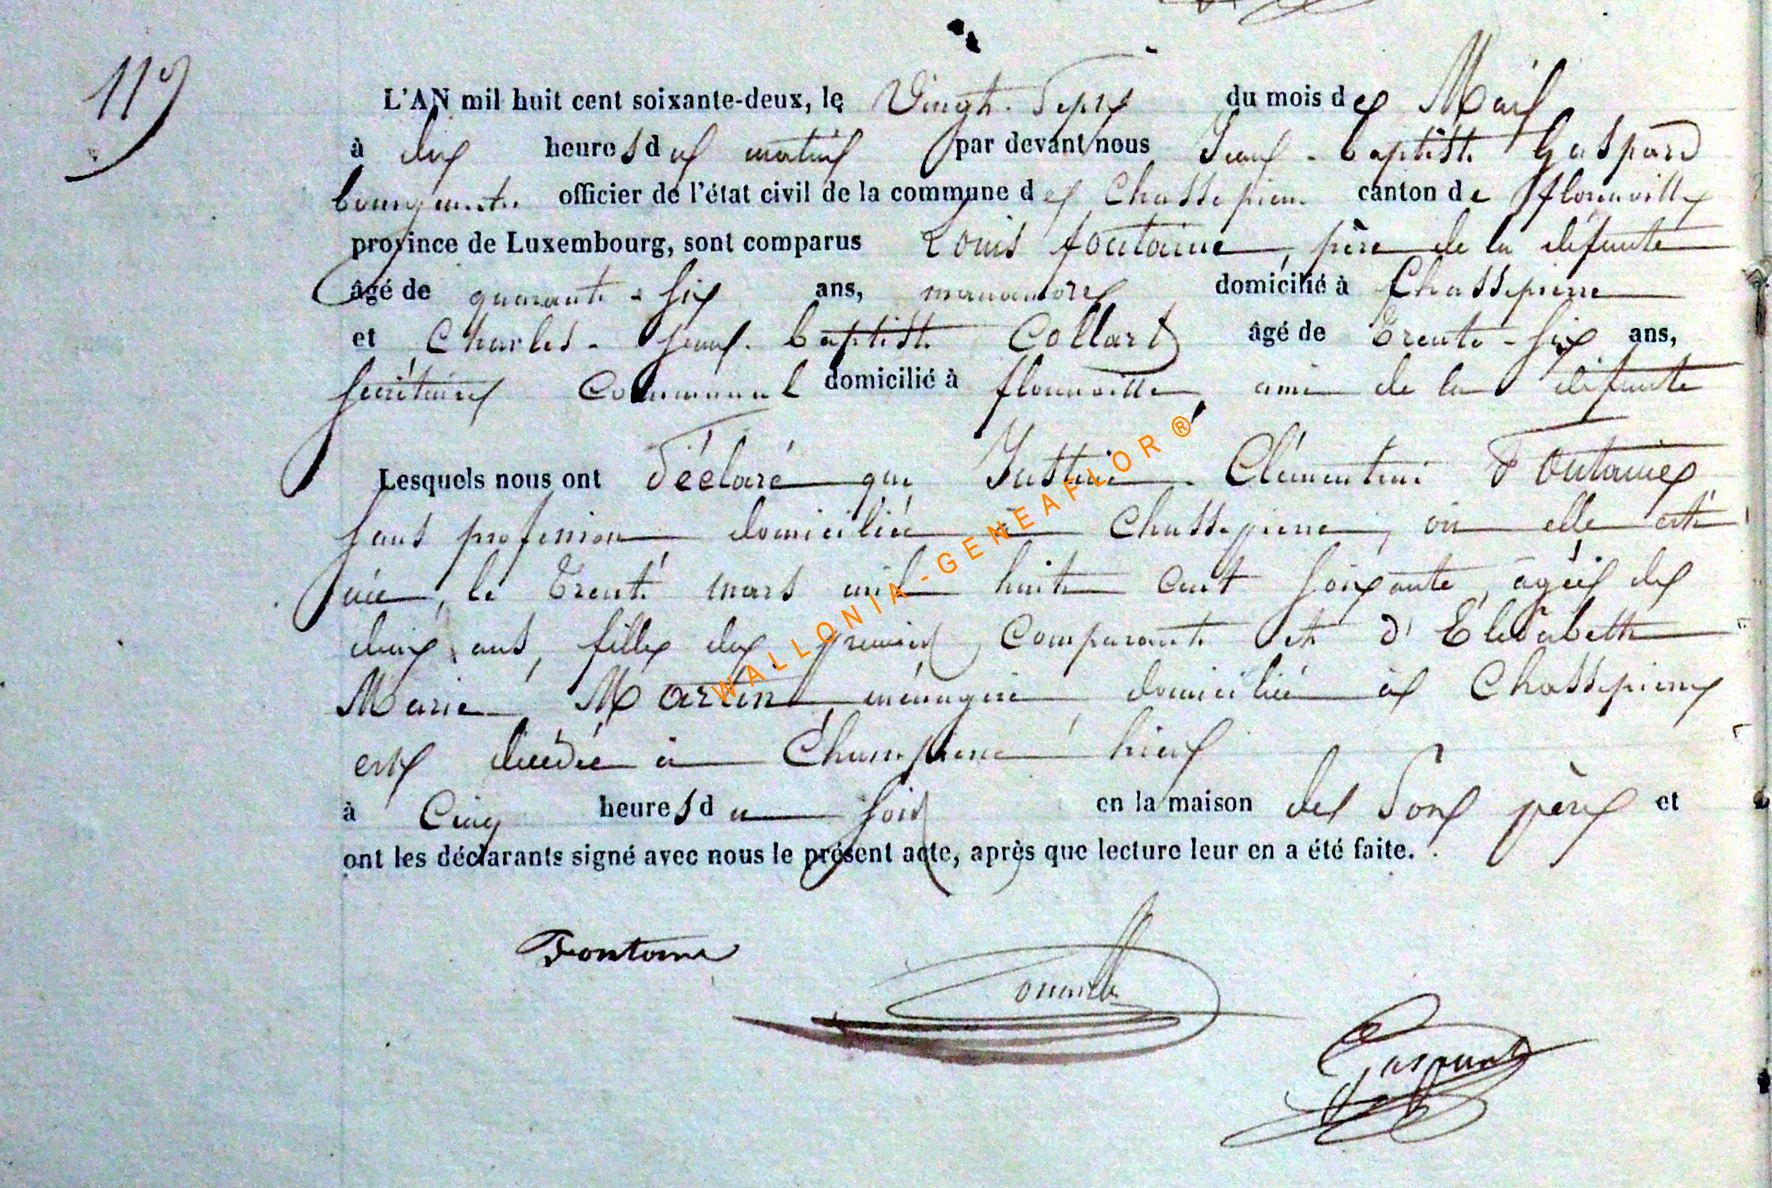 119
L'AN mil huit cent soixante-deux, le Vingt-Sept du mois de Mai
à dix heures du matin par devant nous Jean-baptiste Gaspard
bourgmestre officier de l'état civil de la commune de Chassepierre canton de florenville
province de Luxembourg, sont comparus Louis fontaine, père de la défunte
âgé de quarante-six ans, manœuvre domicilié à Chassepierre
et Charles-Jean-baptiste Collard âgé de trente-six ans,
secrétaire communal domicilié à florenville, ami de la défunte
Lesquels nous ont déclaré que Justine-Clémentine Fontaine
sans profession domiciliée à Chassepierre, où elle est
née, le trente mars mil huit cent soixante, âgée de
deux ans, fille du premier comparant et d'Elisabeth
Marie Martin, ménagère, domiciliée à Chassepierre
est décédée à Chassepierre hier
à Cinq heures du soir en la maison de son père et
ont les déclarants signé avec nous le présent acte, après que lecture leur en a été faite.
Fontaine
Gaspard
WALLONIA-GENEAFLOR®